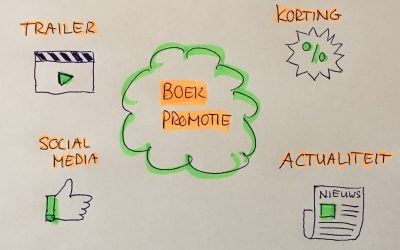 TRAILER
KORTING
%
BOEK
PROMOTIE
SOCIAL
MEDIA
ACTUALITEIT
NIEUWS